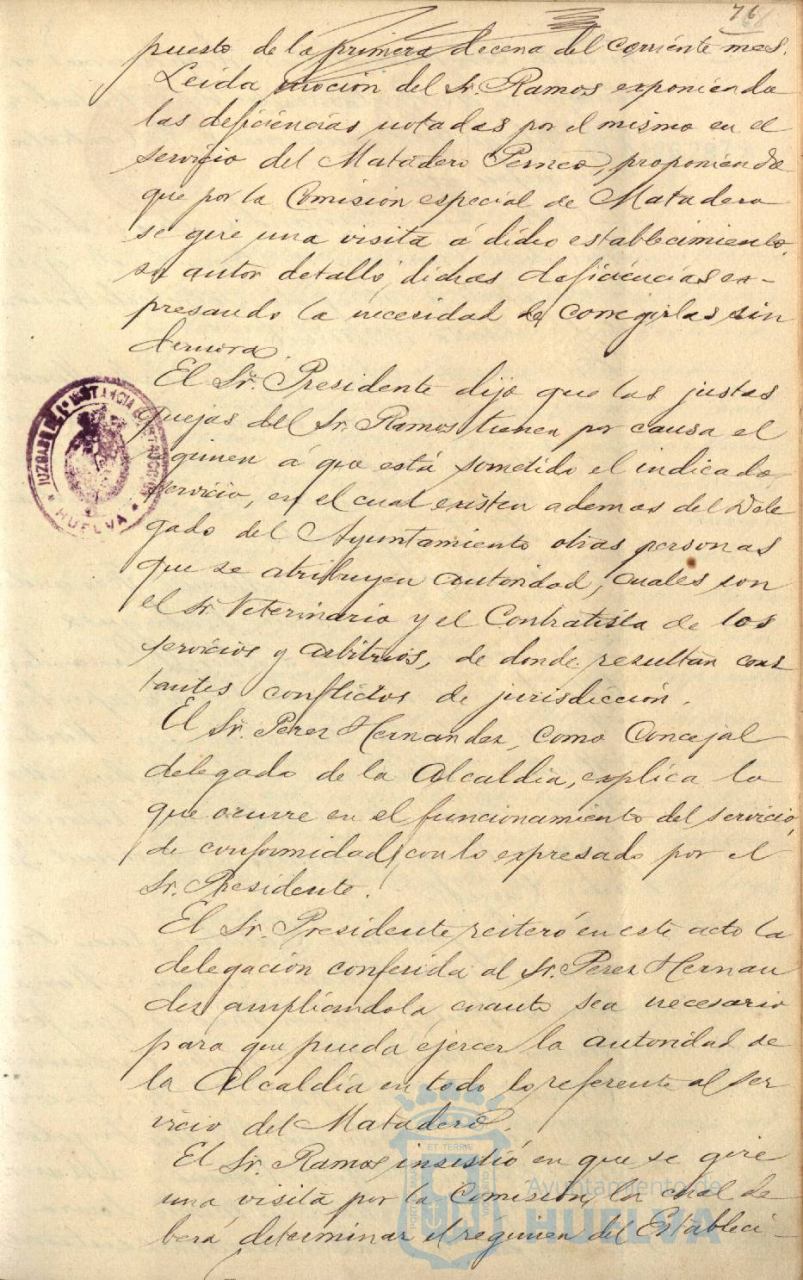 76
puesto de la primera decena del corriente mes.
Leida mocion del Sr. Ramos exponiendo
las deficiencias notadas por el mismo en el
servicio del Matadero, proponiendo
que por la Comisión especial de Matadero
se gire una visita á dicho establecimiento,
su autor detalló dichas deficiencias ex-
presando la necesidad de corregirlas sin
demora.
El Sr. Presidente dijo que las justas
quejas del Sr. Ramos tienen por causa el
régimen á que está sometido el indicado
servicio, en el cual existen ademas del Dele
gado del Ayuntamiento otras personas
que se atribuyen autoridad, cuales son
el Sr. Veterinario y el Contratista de los
servicios y arbitrios, de donde resultan cons
tantes conflictos de jurisdicción.
El Sr. Perez Hernandez, como Concejal
delegado de la Alcaldia, explica lo
que ocurre en el funcionamiento del servicio,
de conformidad con lo expresado por el
Sr. Presidente.
El Sr. Presidente reiteró en este acto la
delegación conferida al Sr. Perez Hernan
dez ampliándola cuanto sea necesario
para que pueda ejercer la autoridad de
la Alcaldía en todo lo referente al ser
vicio del Matadero.
El Sr. Ramos insistió en que se gire
una visita por la Comisión, la cual de
berá determinar el régimen del Estableci-
JUZGADO DE 1ª INSTANCIA É INSTRUCCION
HUELVA
Ayuntamiento de
HUELVA